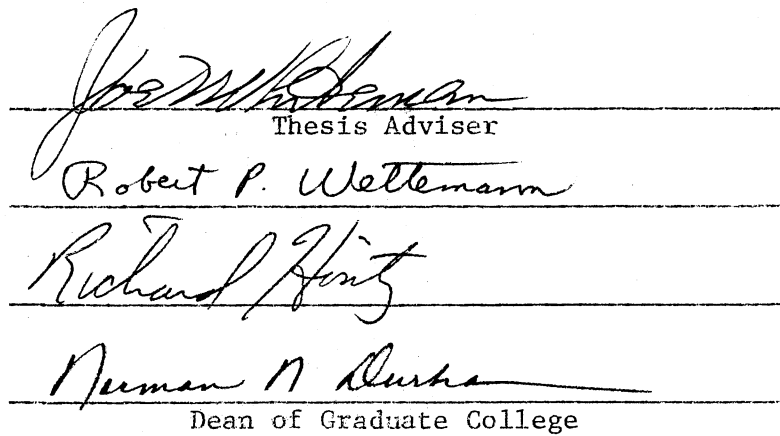 Joe V. Whiteman
Thesis Adviser
Robert P. Wettemann
Richard Hintz
Norman N Durham
Dean of Graduate College